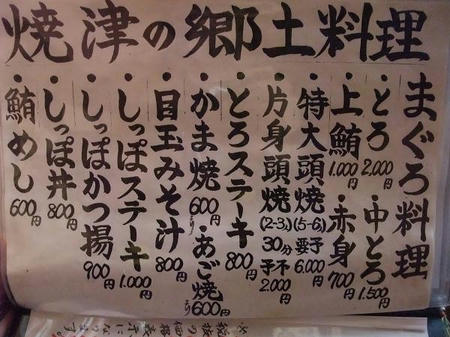 焼津の郷土料理
まぐろ料理
・とろ 2.000円 ・中とろ 1.500円
・上鮪 1.000円 ・赤身 700円
・特大頭焼 (5-6人) 要予 6.000円
・片身頭焼 (2-3人) 30分 予不 2.000円
・とろステーキ 800円
・かま焼 600円より ・あご焼 600円より
・目玉みそ汁 800円
・しっぽステーキ 1.000円
・しっぽかつ揚 900円
・しっぽ丼 800円
・鮪めし 600円